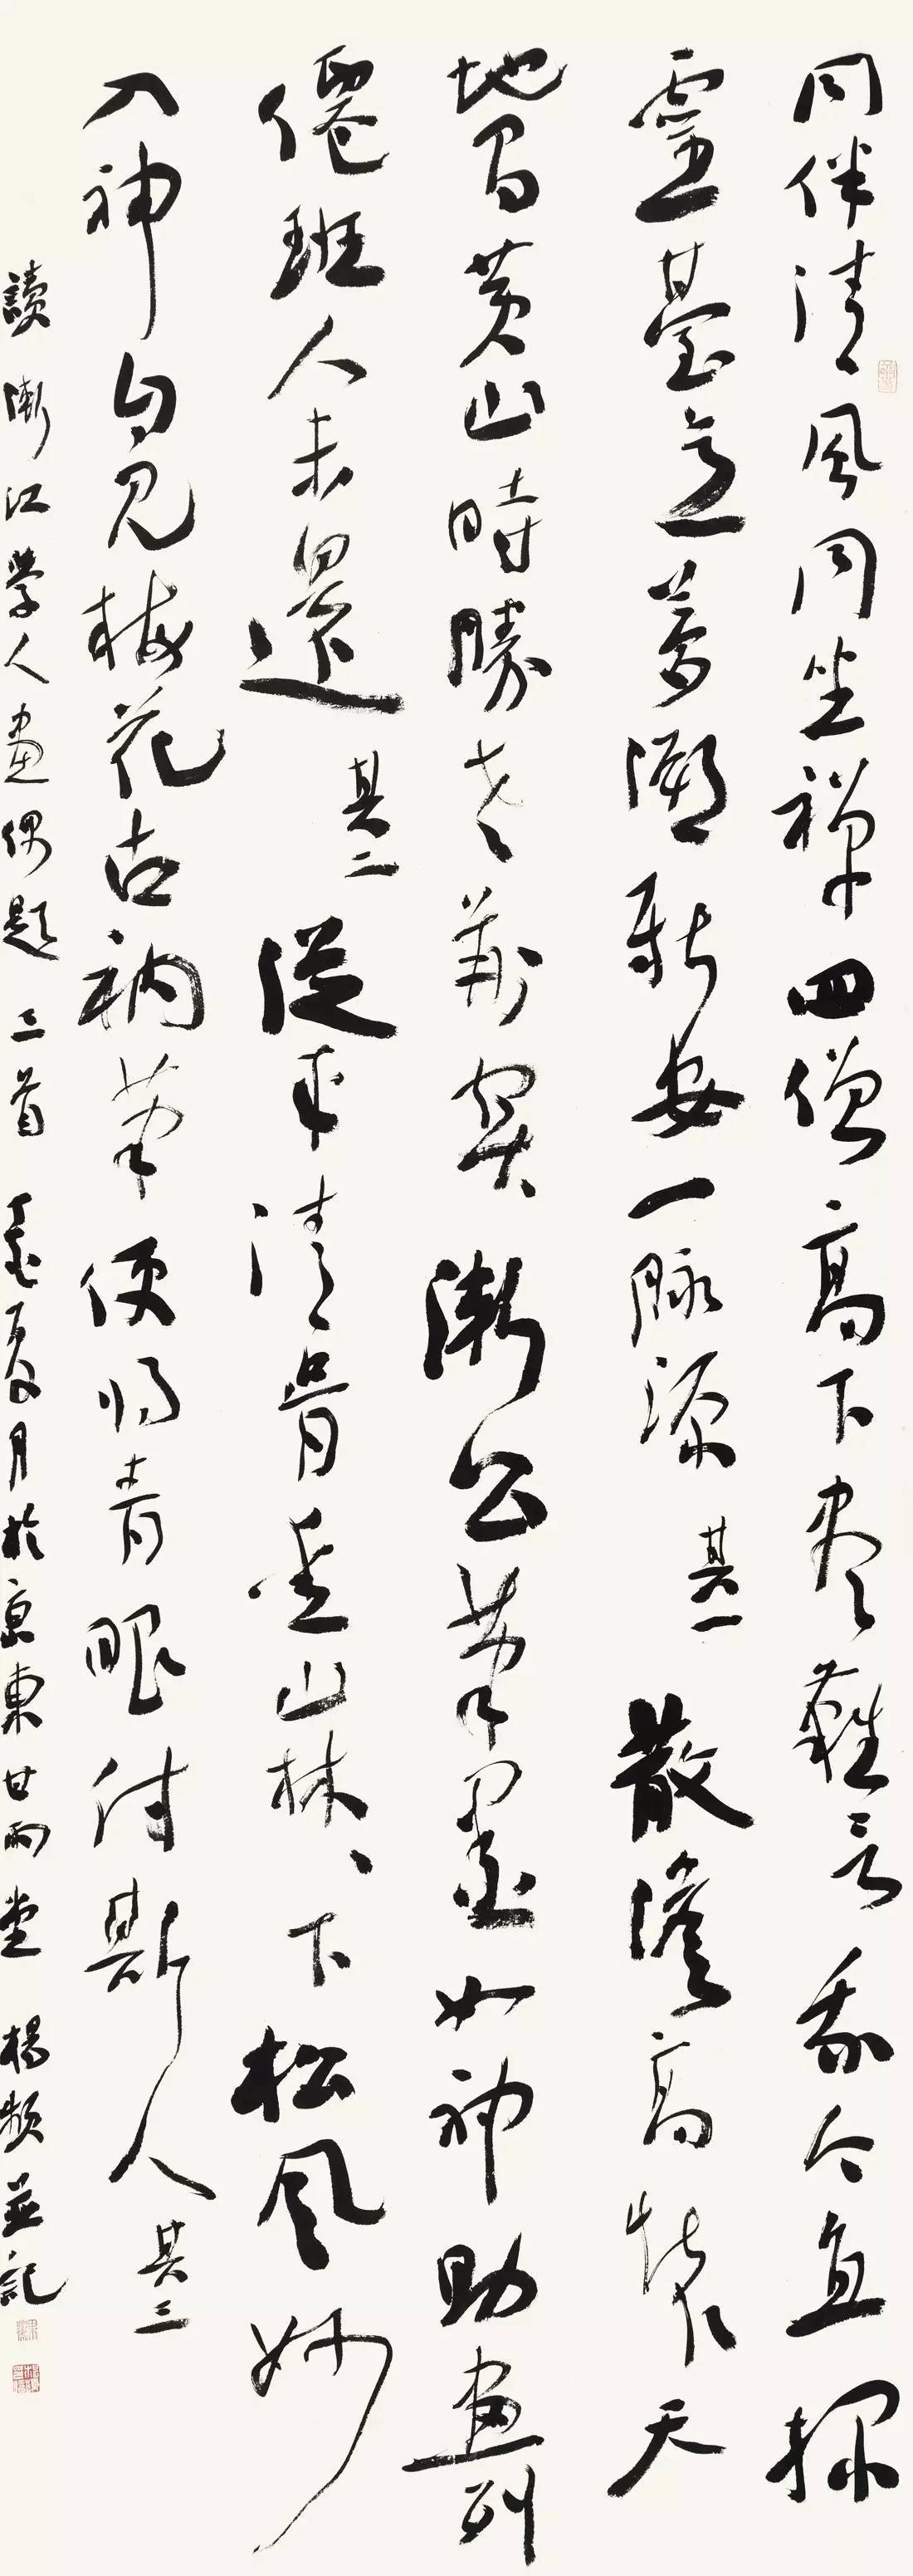 同伴清風同坐禪四僧高下盡難言我今直探
靈臺意菩溯新安一脉源 其一 散澹高懷天
地間黃山時勝老叢奧漸公筆墨如神助畫列
僊班人未還 其二 從來清骨在山林林下松風妙
入神自見梅花古衲筆便將青眼付斯人 其三
讀漸江學人畫偶題三首 夏月於京東甘雨堂 楊頻並記